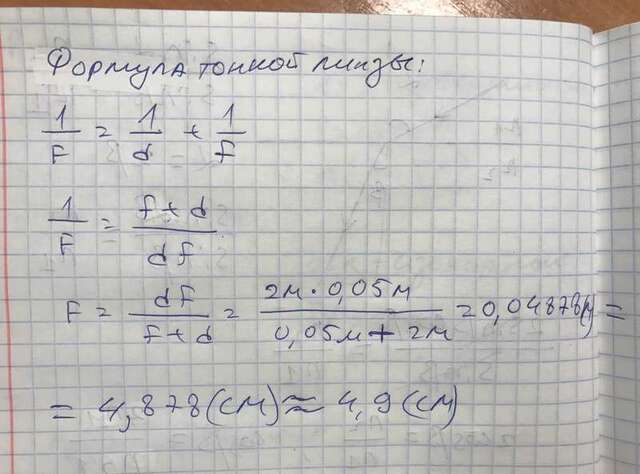 Формула тонкой линзы:
1/F = 1/d + 1/f
1/F = f+d/df
F = df/f+d = 2м·0,05м/0,05м+2м = 0,04878(м) =
= 4,878(см) ≈ 4,9(см)